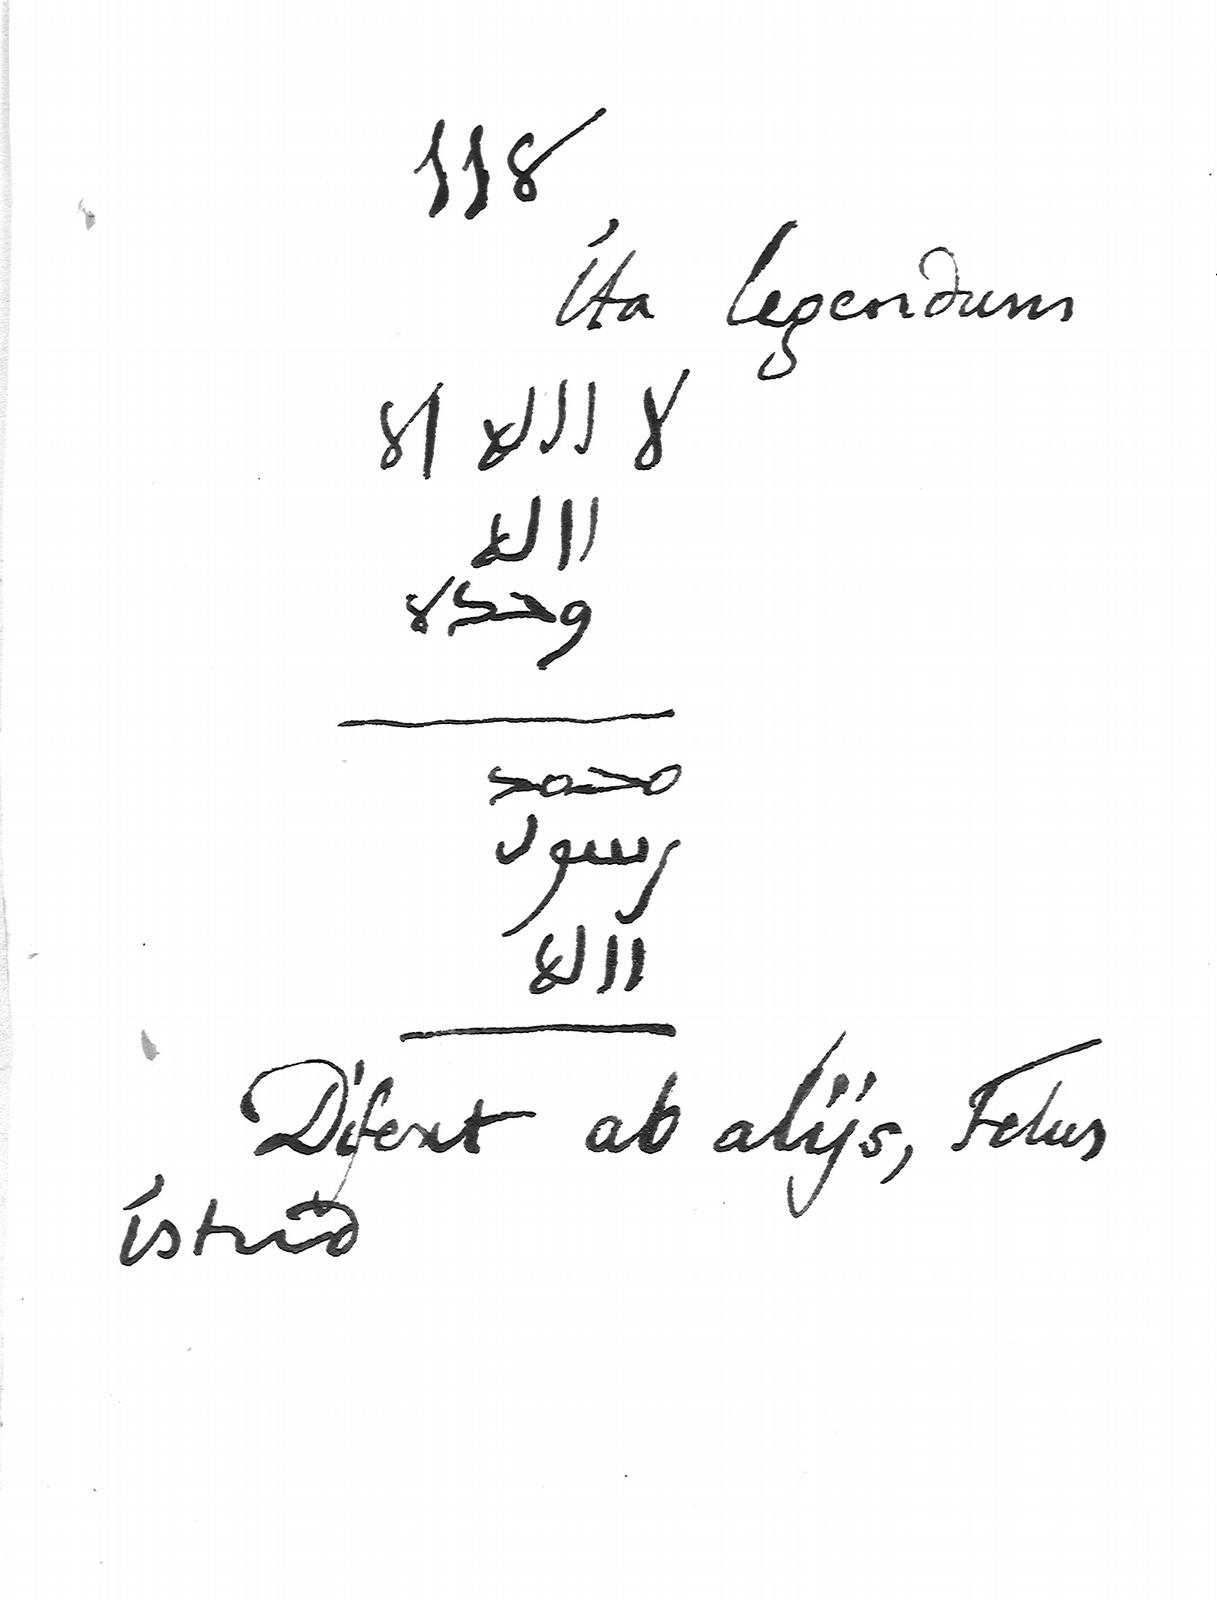 118
Ita legendum
لا اله الا
الله
وحده
محمد
رسول
الله
Difert ab alijs,